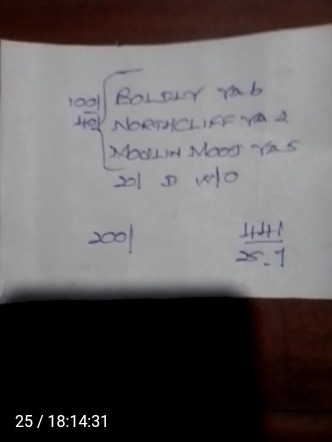 100/ BOLDLY Ya 6
40/ NORTHCLIFF Ya 2
MOULIN MOOJ Ya 5
20/ D W/O
200/ 441
25-7
25 / 18:14:31